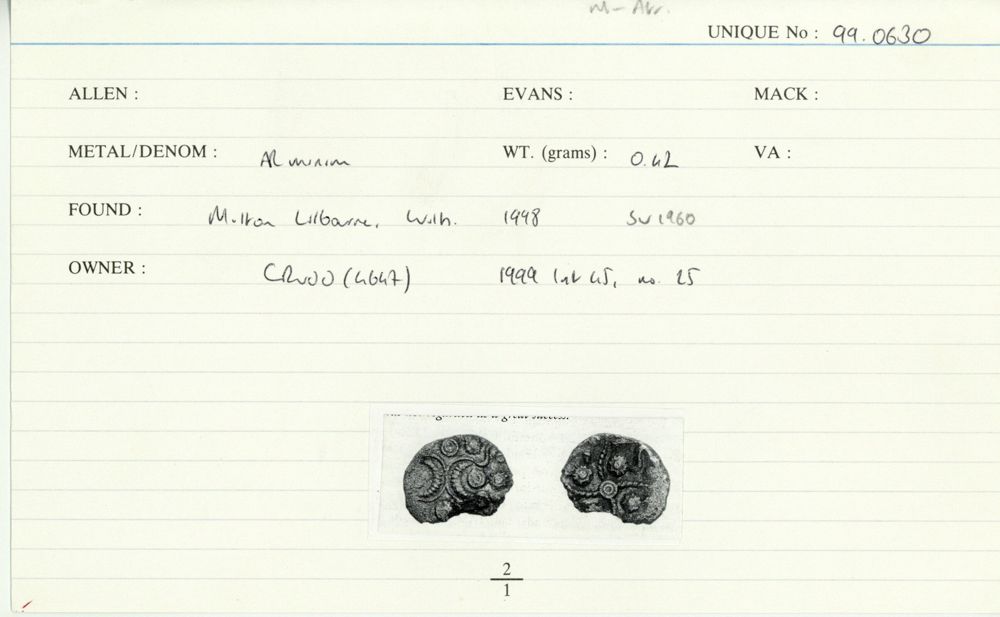 M-Atr.
UNIQUE No : 99.0630
ALLEN : EVANS : MACK :
METAL/DENOM : AR minim WT. (grams) : 0.42 VA :
FOUND : Milton Lilbourne, Wilts. 1998 SU 1960
OWNER : CR (4647) 1999 no. 25
as a great success.
2
1